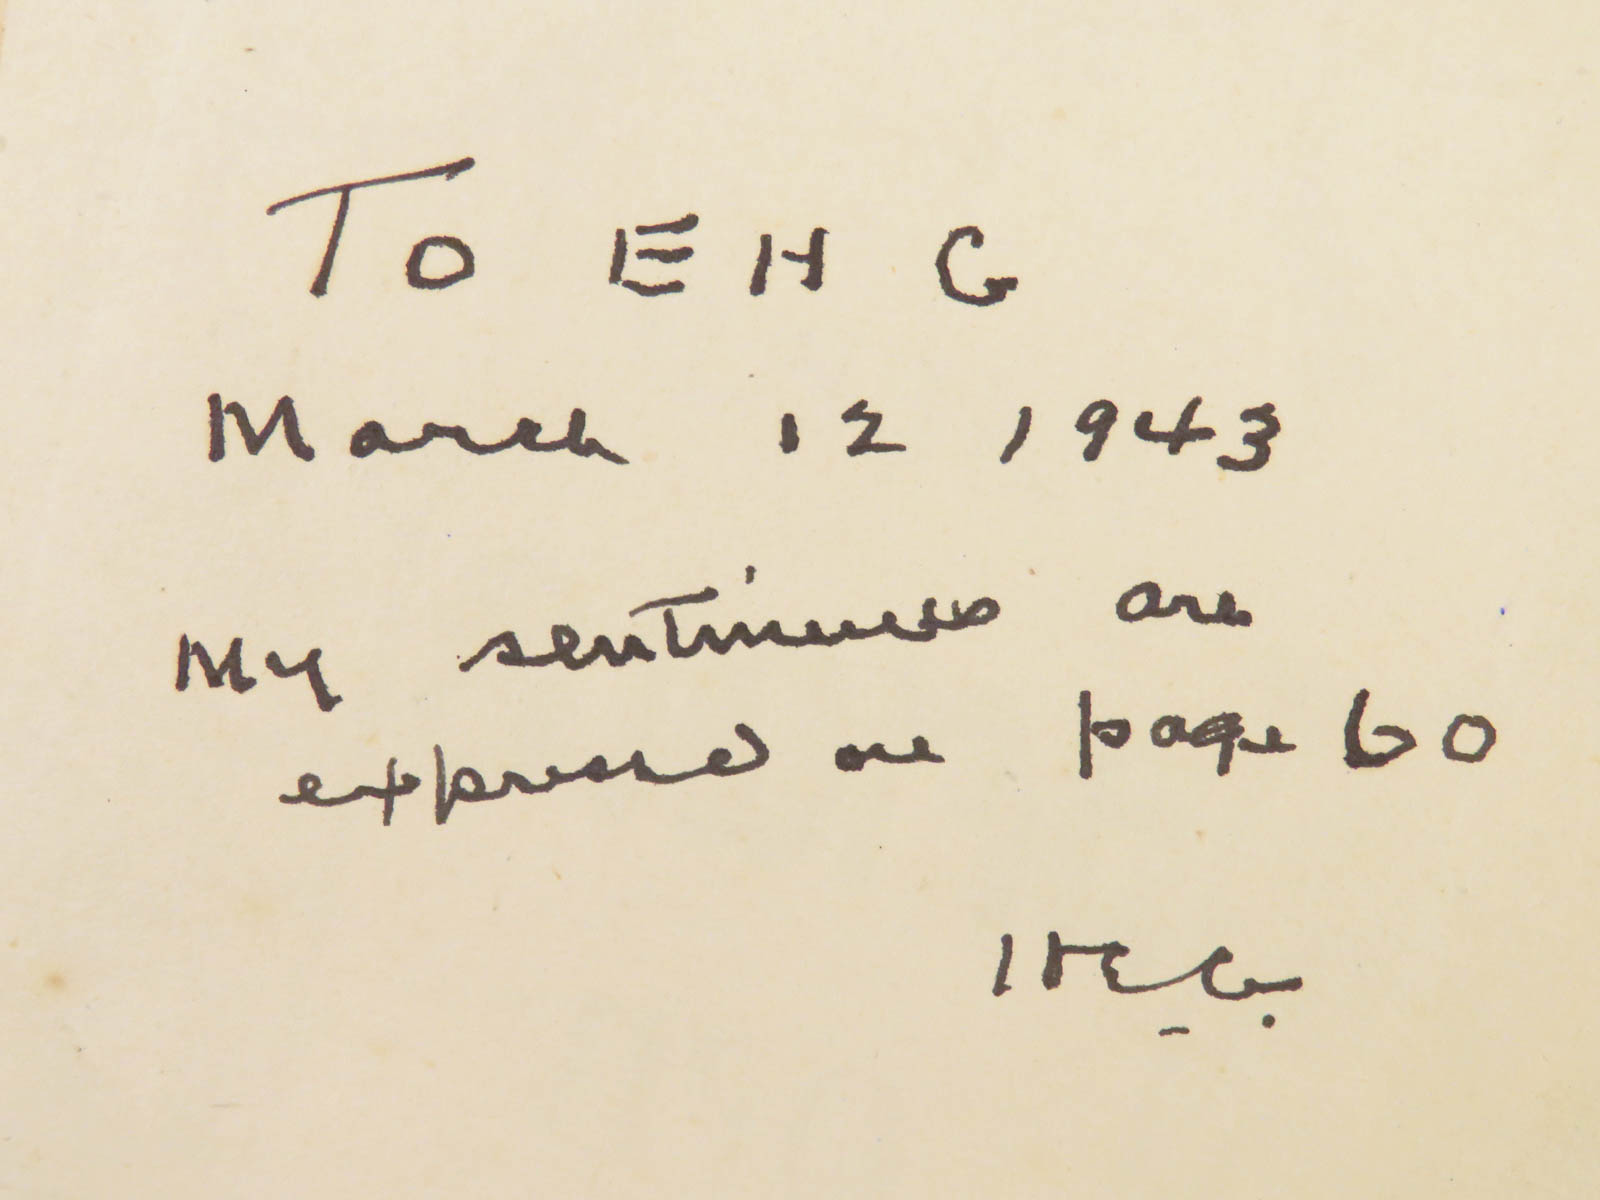 To E H G
March 12 1943
My sentiments are
expressed on page 60
H E G.